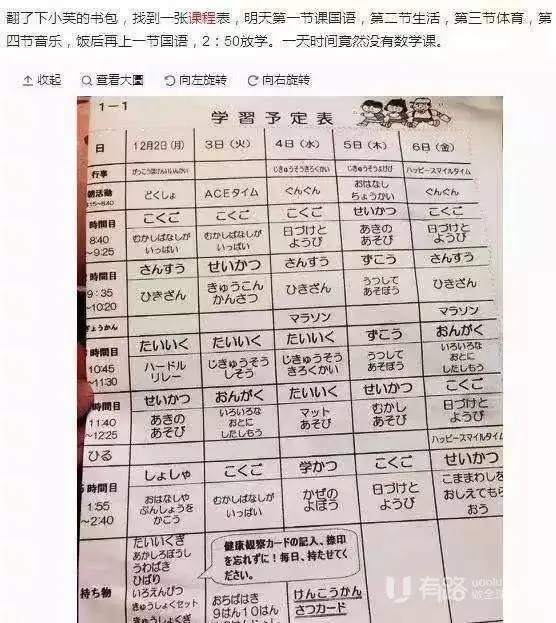 翻了下小芙的书包，找到一张课程表，明天第一节课国语，第二节生活，第三节体育，第
四节音乐，饭后再上一节国语，2：50放学。一天时间竟然没有数学课。
收起 查看大圖 向左旋转 向右旋转
1－1
学習予定表
日 12月2日(月) 3日(火) 4日(水) 5日(木) 6日(金)
行事 じきゅうそうきろくかい じきゅうそうよけび ハッピースマイルタイム
朝活動 どくしょ ACEタイム ぐんぐん おはなし ちょうかい ぐんぐん
8:15～8:40
時間目 こくご こくご こくご せいかつ こくご
8:40 ～9:25 むかしばなしが いっぱい むかしばなしが いっぱい 日づけと ようび あきの あそび 日づけと ようび
時間目 さんすう せいかつ さんすう ずこう さんすう
9:35 ～10:20 ひきざん きゅうこん かんさつ ひきざん うつして あそぼう ひきざん
ぎょうかん マラソン マラソン
時間目 たいいく たいいく たいいく ずこう おんがく
10:45 ～11:30 ハードル リレー じきゅうそう しそう じきゅうそう きろくかい うつして あそぼう いろいろな おとに したしもう
時間目 せいかつ おんがく たいいく せいかつ こくご
11:40 ～12:25 あきの あそび いろいろな おとに したしもう マット あそび むかし あそび 日づけと ようび
ひる ハッピースマイルタイム
時間目 しょしゃ こくご 学かつ こくご せいかつ
1:55 ～2:40 おはなしや ぶんしょうを かこう むかしばなしが いっぱい かぜの よぼう 日づけと ようび こままわしを おしえてもら おう
持ち物 たいいくぎ
あかしろぼうし
うわばき
ひばり
いろえんぴつ
きゅうしょくセット
きゅうしょくぎ
健康観察カードの記入、捺印
を忘れずに！毎日、持たせてく
ださい。
おちばはき
9はん10はん
けんこうかん
さつカード
有路